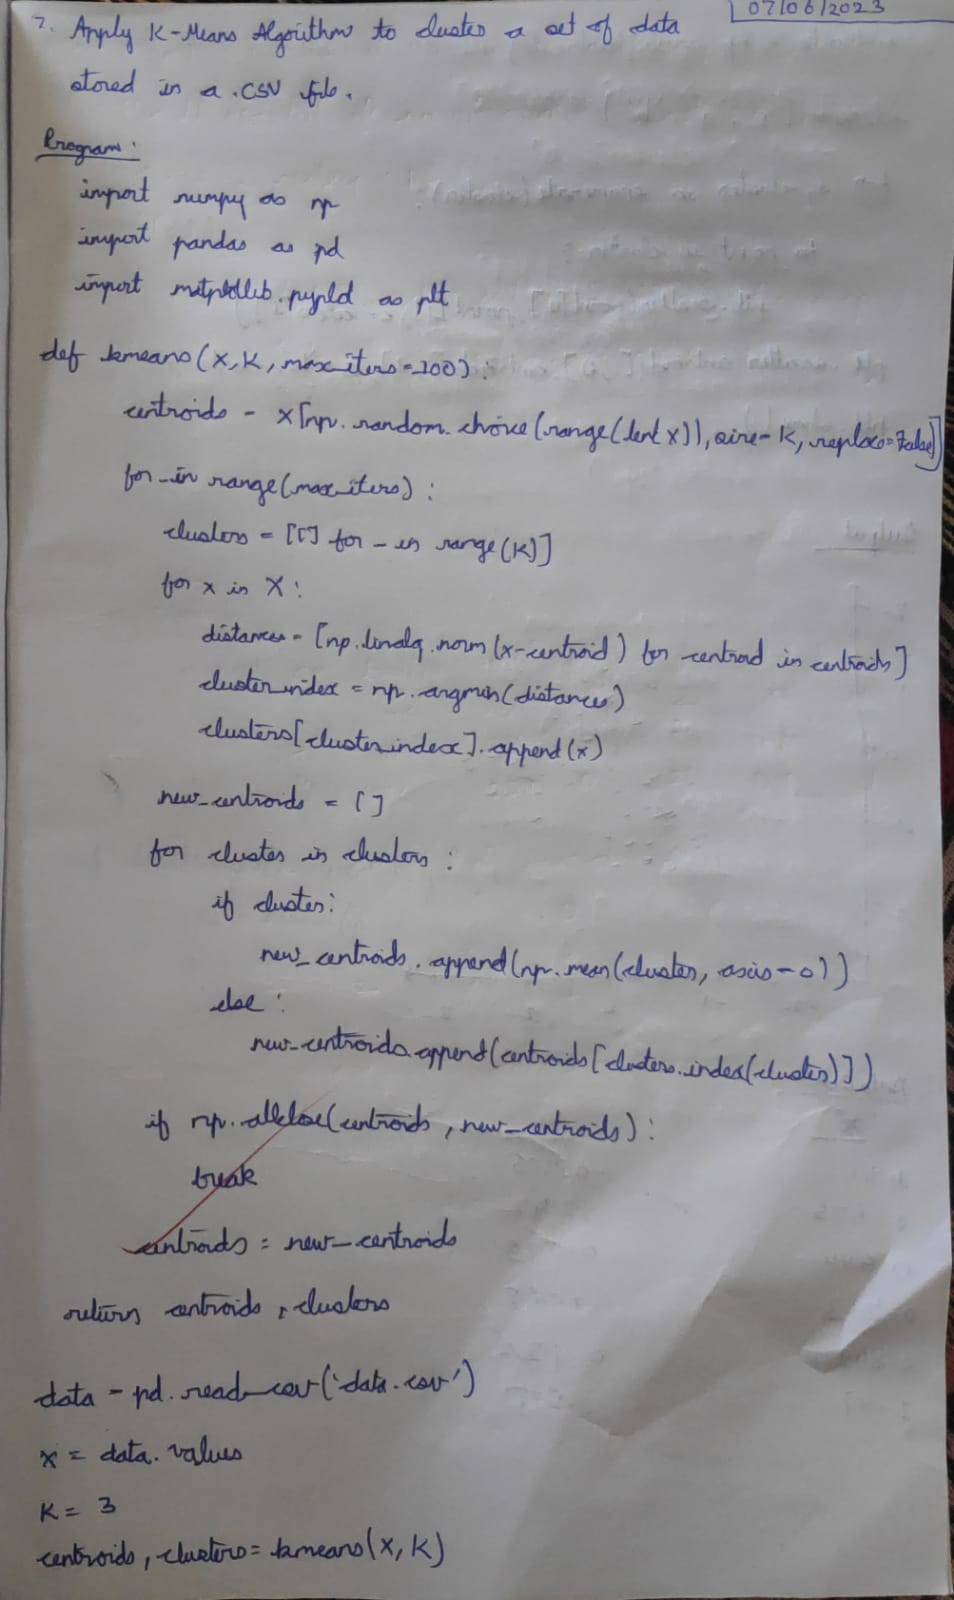 07/06/2023
7. Apply K-Means Algorithm to cluster a set of data
stored in a .CSV file.
Program:
import numpy as np
import pandas as pd
import matplotlib.pyplot as plt
def kmeans(X, K, max_iters=100):
centroids = X[np.random.choice(range(len(X)), size=K, replace=False)]
for _ in range(max_iters):
clusters = [[] for _ in range(K)]
for x in X:
distances = [np.linalg.norm(x-centroid) for centroid in centroids]
cluster_index = np.argmin(distances)
clusters[cluster_index].append(x)
new_centroids = []
for cluster in clusters:
if cluster:
new_centroids.append(np.mean(cluster, axis=0))
else:
new_centroids.append(centroids[clusters.index(cluster)])
if np.allclose(centroids, new_centroids):
break
centroids = new_centroids
return centroids, clusters
data = pd.read_csv('data.csv')
X = data.values
K = 3
centroids, clusters = kmeans(X, K)